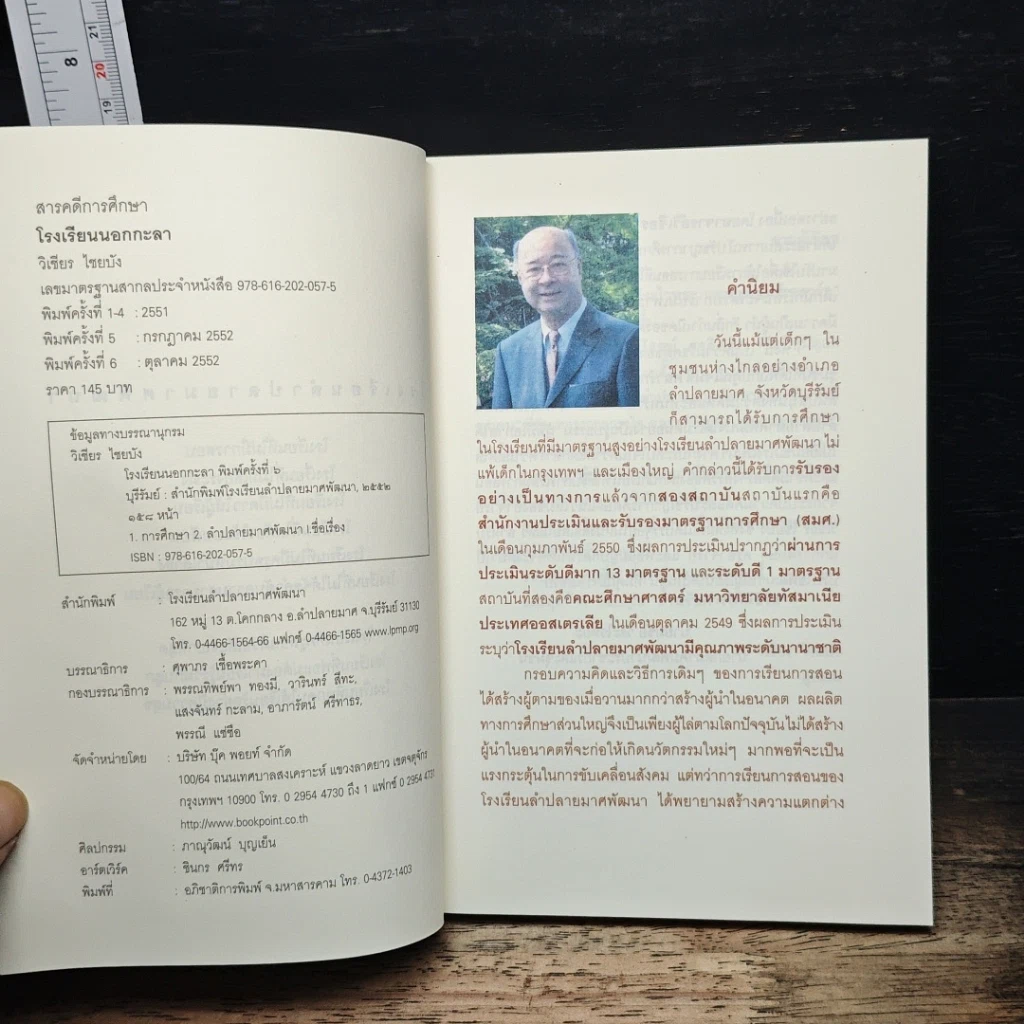 8
21
20
19
สารคดีการศึกษา
โรงเรียนนอกกะลา
วิเชียร ไชยบัง
เลขมาตรฐานสากลประจำหนังสือ 978-616-202-057-5
พิมพ์ครั้งที่ 1-4 : 2551
พิมพ์ครั้งที่ 5 : กรกฎาคม 2552
พิมพ์ครั้งที่ 6 : ตุลาคม 2552
ราคา 145 บาท
ข้อมูลทางบรรณานุกรม
วิเชียร ไชยบัง
โรงเรียนนอกกะลา พิมพ์ครั้งที่ ๖
บุรีรัมย์ : สำนักพิมพ์โรงเรียนลำปลายมาศพัฒนา, ๒๕๕๒
๑๕๘ หน้า
1. การศึกษา 2. ลำปลายมาศพัฒนา I.ชื่อเรื่อง
ISBN : 978-616-202-057-5
สำนักพิมพ์ : โรงเรียนลำปลายมาศพัฒนา
162 หมู่ 13 ต.โคกกลาง อ.ลำปลายมาศ จ.บุรีรัมย์ 31130
โทร. 0-4466-1564-66 แฟกซ์ 0-4466-1565 www.lpmp.org
บรรณาธิการ : ศุพาภร เชื้อพระคา
กองบรรณาธิการ : พรรณทิพย์พา ทองมี, วารินทร์ สีทะ,
แสงจันทร์ กะลาม, อาภารัตน์ ศรีทาธร,
พรรณี แซ่ซือ
จัดจำหน่ายโดย : บริษัท บุ๊ค พอยท์ จำกัด
100/64 ถนนเทศบาลสงเคราะห์ แขวงลาดยาว เขตจตุจักร
กรุงเทพฯ 10900 โทร. 0 2954 4730 ถึง 1 แฟกซ์ 0 2954 4731
http://www.bookpoint.co.th
ศิลปกรรม : ภาณุวัฒน์ บุญเย็น
อาร์ตเวิร์ค : ชินกร ศรีทร
พิมพ์ที่ : อภิชาติการพิมพ์ จ.มหาสารคาม โทร. 0-4372-1403
คำนิยม
วันนี้แม้แต่เด็กๆ ใน
ชุมชนห่างไกลอย่างอำเภอ
ลำปลายมาศ จังหวัดบุรีรัมย์
ก็สามารถได้รับการศึกษา
ในโรงเรียนที่มีมาตรฐานสูงอย่างโรงเรียนลำปลายมาศพัฒนา ไม่
แพ้เด็กในกรุงเทพฯ และเมืองใหญ่ คำกล่าวนี้ได้รับการรับรอง
อย่างเป็นทางการแล้วจากสองสถาบันสถาบันแรกคือ
สำนักงานประเมินและรับรองมาตรฐานการศึกษา (สมศ.)
ในเดือนกุมภาพันธ์ 2550 ซึ่งผลการประเมินปรากฏว่าผ่านการ
ประเมินระดับดีมาก 13 มาตรฐาน และระดับดี 1 มาตรฐาน
สถาบันที่สองคือคณะศึกษาศาสตร์ มหาวิทยาลัยทัสมาเนีย
ประเทศออสเตรเลีย ในเดือนตุลาคม 2549 ซึ่งผลการประเมิน
ระบุว่าโรงเรียนลำปลายมาศพัฒนามีคุณภาพระดับนานาชาติ
กรอบความคิดและวิธีการเดิมๆ ของการเรียนการสอน
ได้สร้างผู้ตามของเมื่อวานมากกว่าสร้างผู้นำในอนาคต ผลผลิต
ทางการศึกษาส่วนใหญ่จึงเป็นเพียงผู้ไล่ตามโลกปัจจุบันไม่ได้สร้าง
ผู้นำในอนาคตที่จะก่อให้เกิดนวัตกรรมใหม่ๆ มากพอที่จะเป็น
แรงกระตุ้นในการขับเคลื่อนสังคม แต่ทว่าการเรียนการสอนของ
โรงเรียนลำปลายมาศพัฒนา ได้พยายามสร้างความแตกต่าง